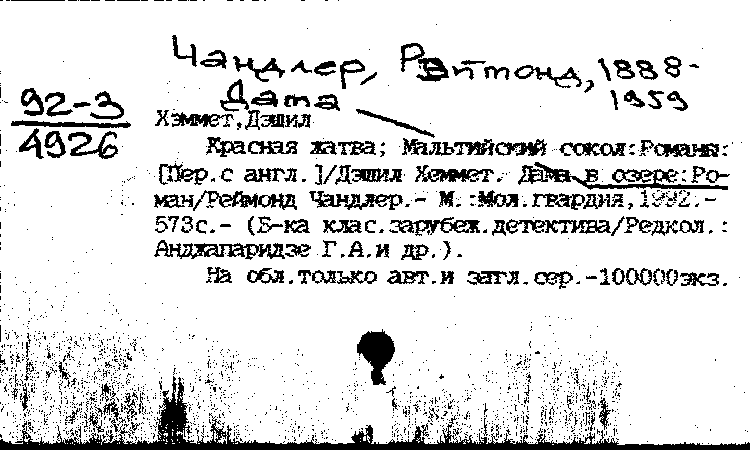 Чандлер, Раймонд, 1888-
1959
Дама
92-3
4926
Хэммет,Дэшил
Красная жатва; Мальтийский сокол:Романы:
[Пер.с англ.]/Дэшил Хеммет. Дама в озере:Ро-
ман/Реймонд Чандлер.- М.:Мол.гвардия,1992.-
573с.- (Б-ка клас.зарубеж.детектива/Редкол.:
Анджапаридзе Г.А.и др.).
На обл.только авт.и загл.сер.-100000экз.